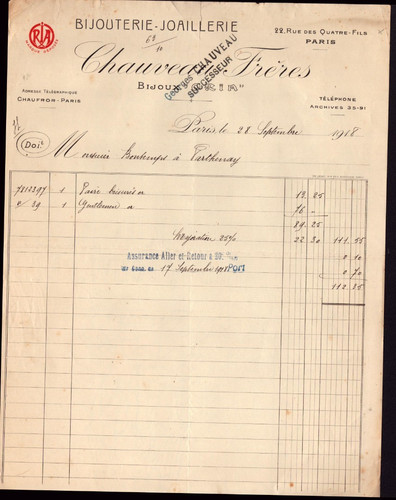 BIJOUTERIE-JOAILLERIE
22, RUE DES QUATRE-FILS
PARIS
RIA
Chauveau Frères
Georges CHAUVEAU
SUCCESSEUR
BIJOUX "RIA"
ADRESSE TÉLÉGRAPHIQUE
CHAUFROR-PARIS
TÉLÉPHONE
ARCHIVES 35-81
Paris, le 28 Septembre 1918
Doit
Monsieur Bontemps à Parthenay
7813397 1 Paire 13 25
39 1 Gentlemen 76 -
89 25
Majoration 25% 22 30 111 55
Assurance Aller et Retour
0 10
17 Septembre 1918 Port
0 70
112 35